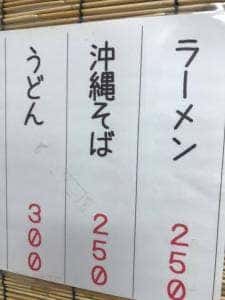 ラーメン 250
沖縄そば 250
うどん 300